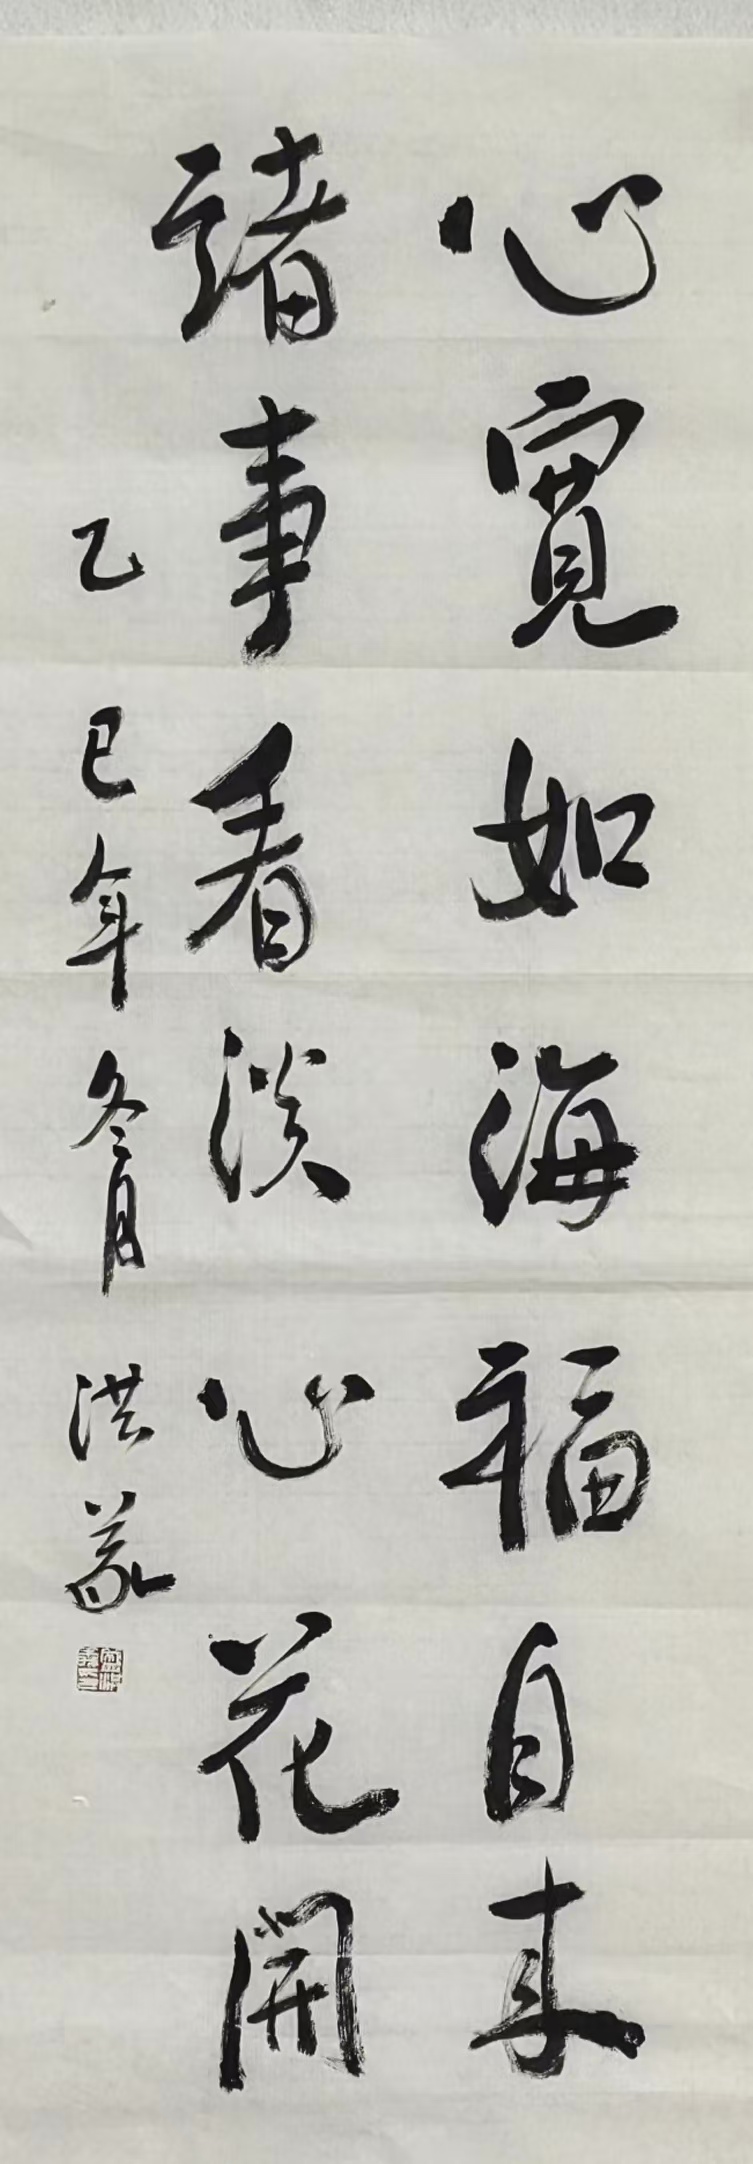 心寬如海福自来
諸事看淡心花開
乙巳年冬月洪義